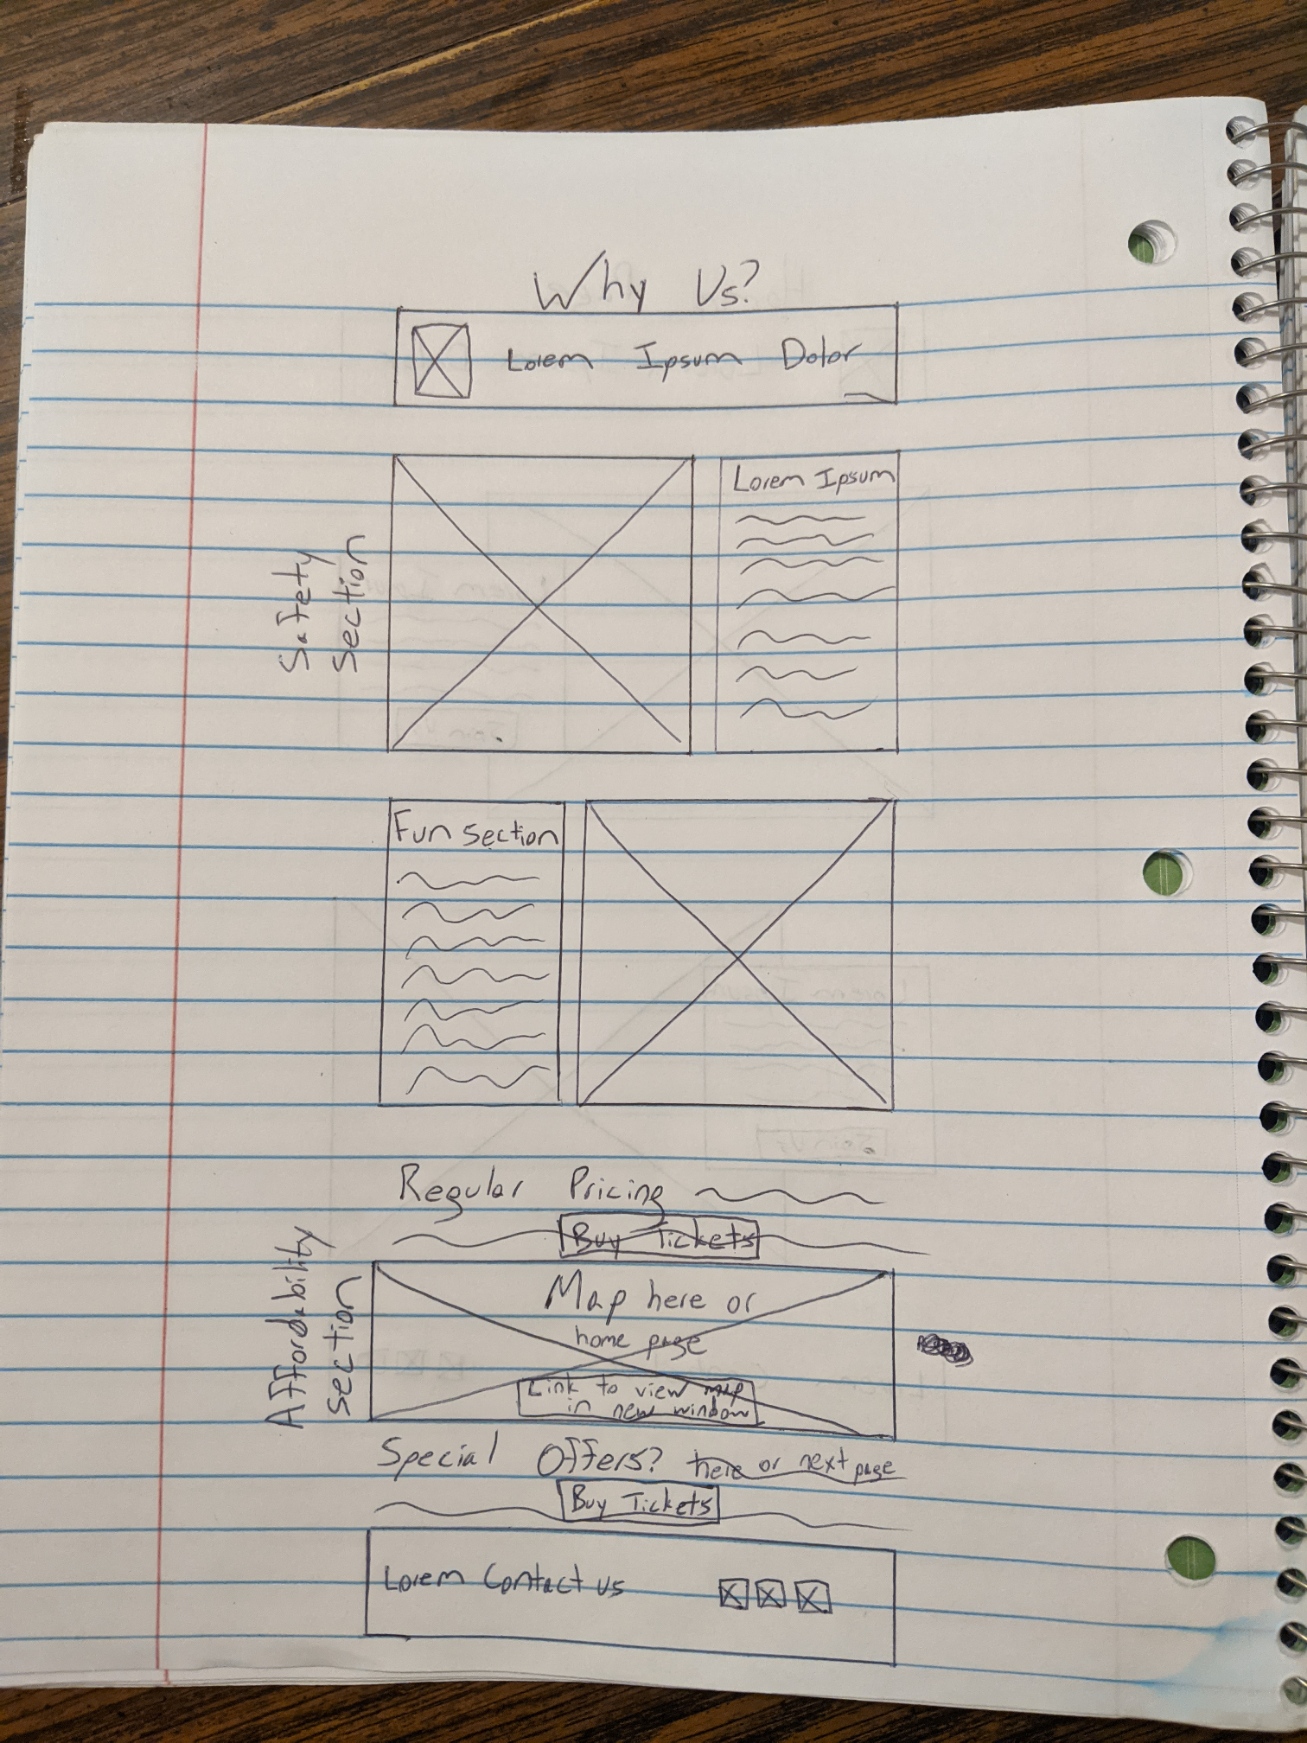 Why Us?
Lorem Ipsum Dolor
Safety
Section
Lorem Ipsum
Fun Section
Regular Pricing
Buy Tickets
Affordability
Section
Map here or
home page
Link to view map
in new window
Special Offers? here or next page
Buy Tickets
Lorem Contact us